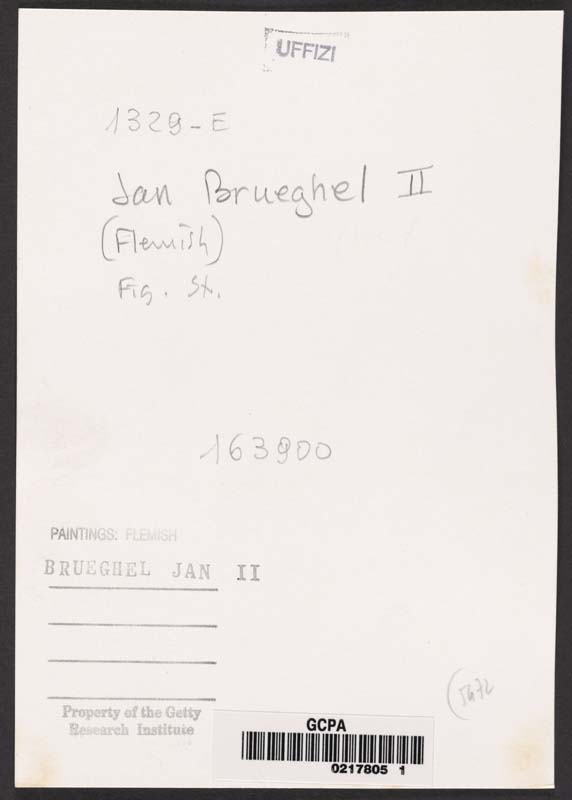 UFFIZI
1329-E
Jan Brueghel II
(Flemish)
Fig. St.
163900
PAINTINGS: FLEMISH
BRUEGHEL JAN II
Property of the Getty
Research Institute
GCPA
0217805 1